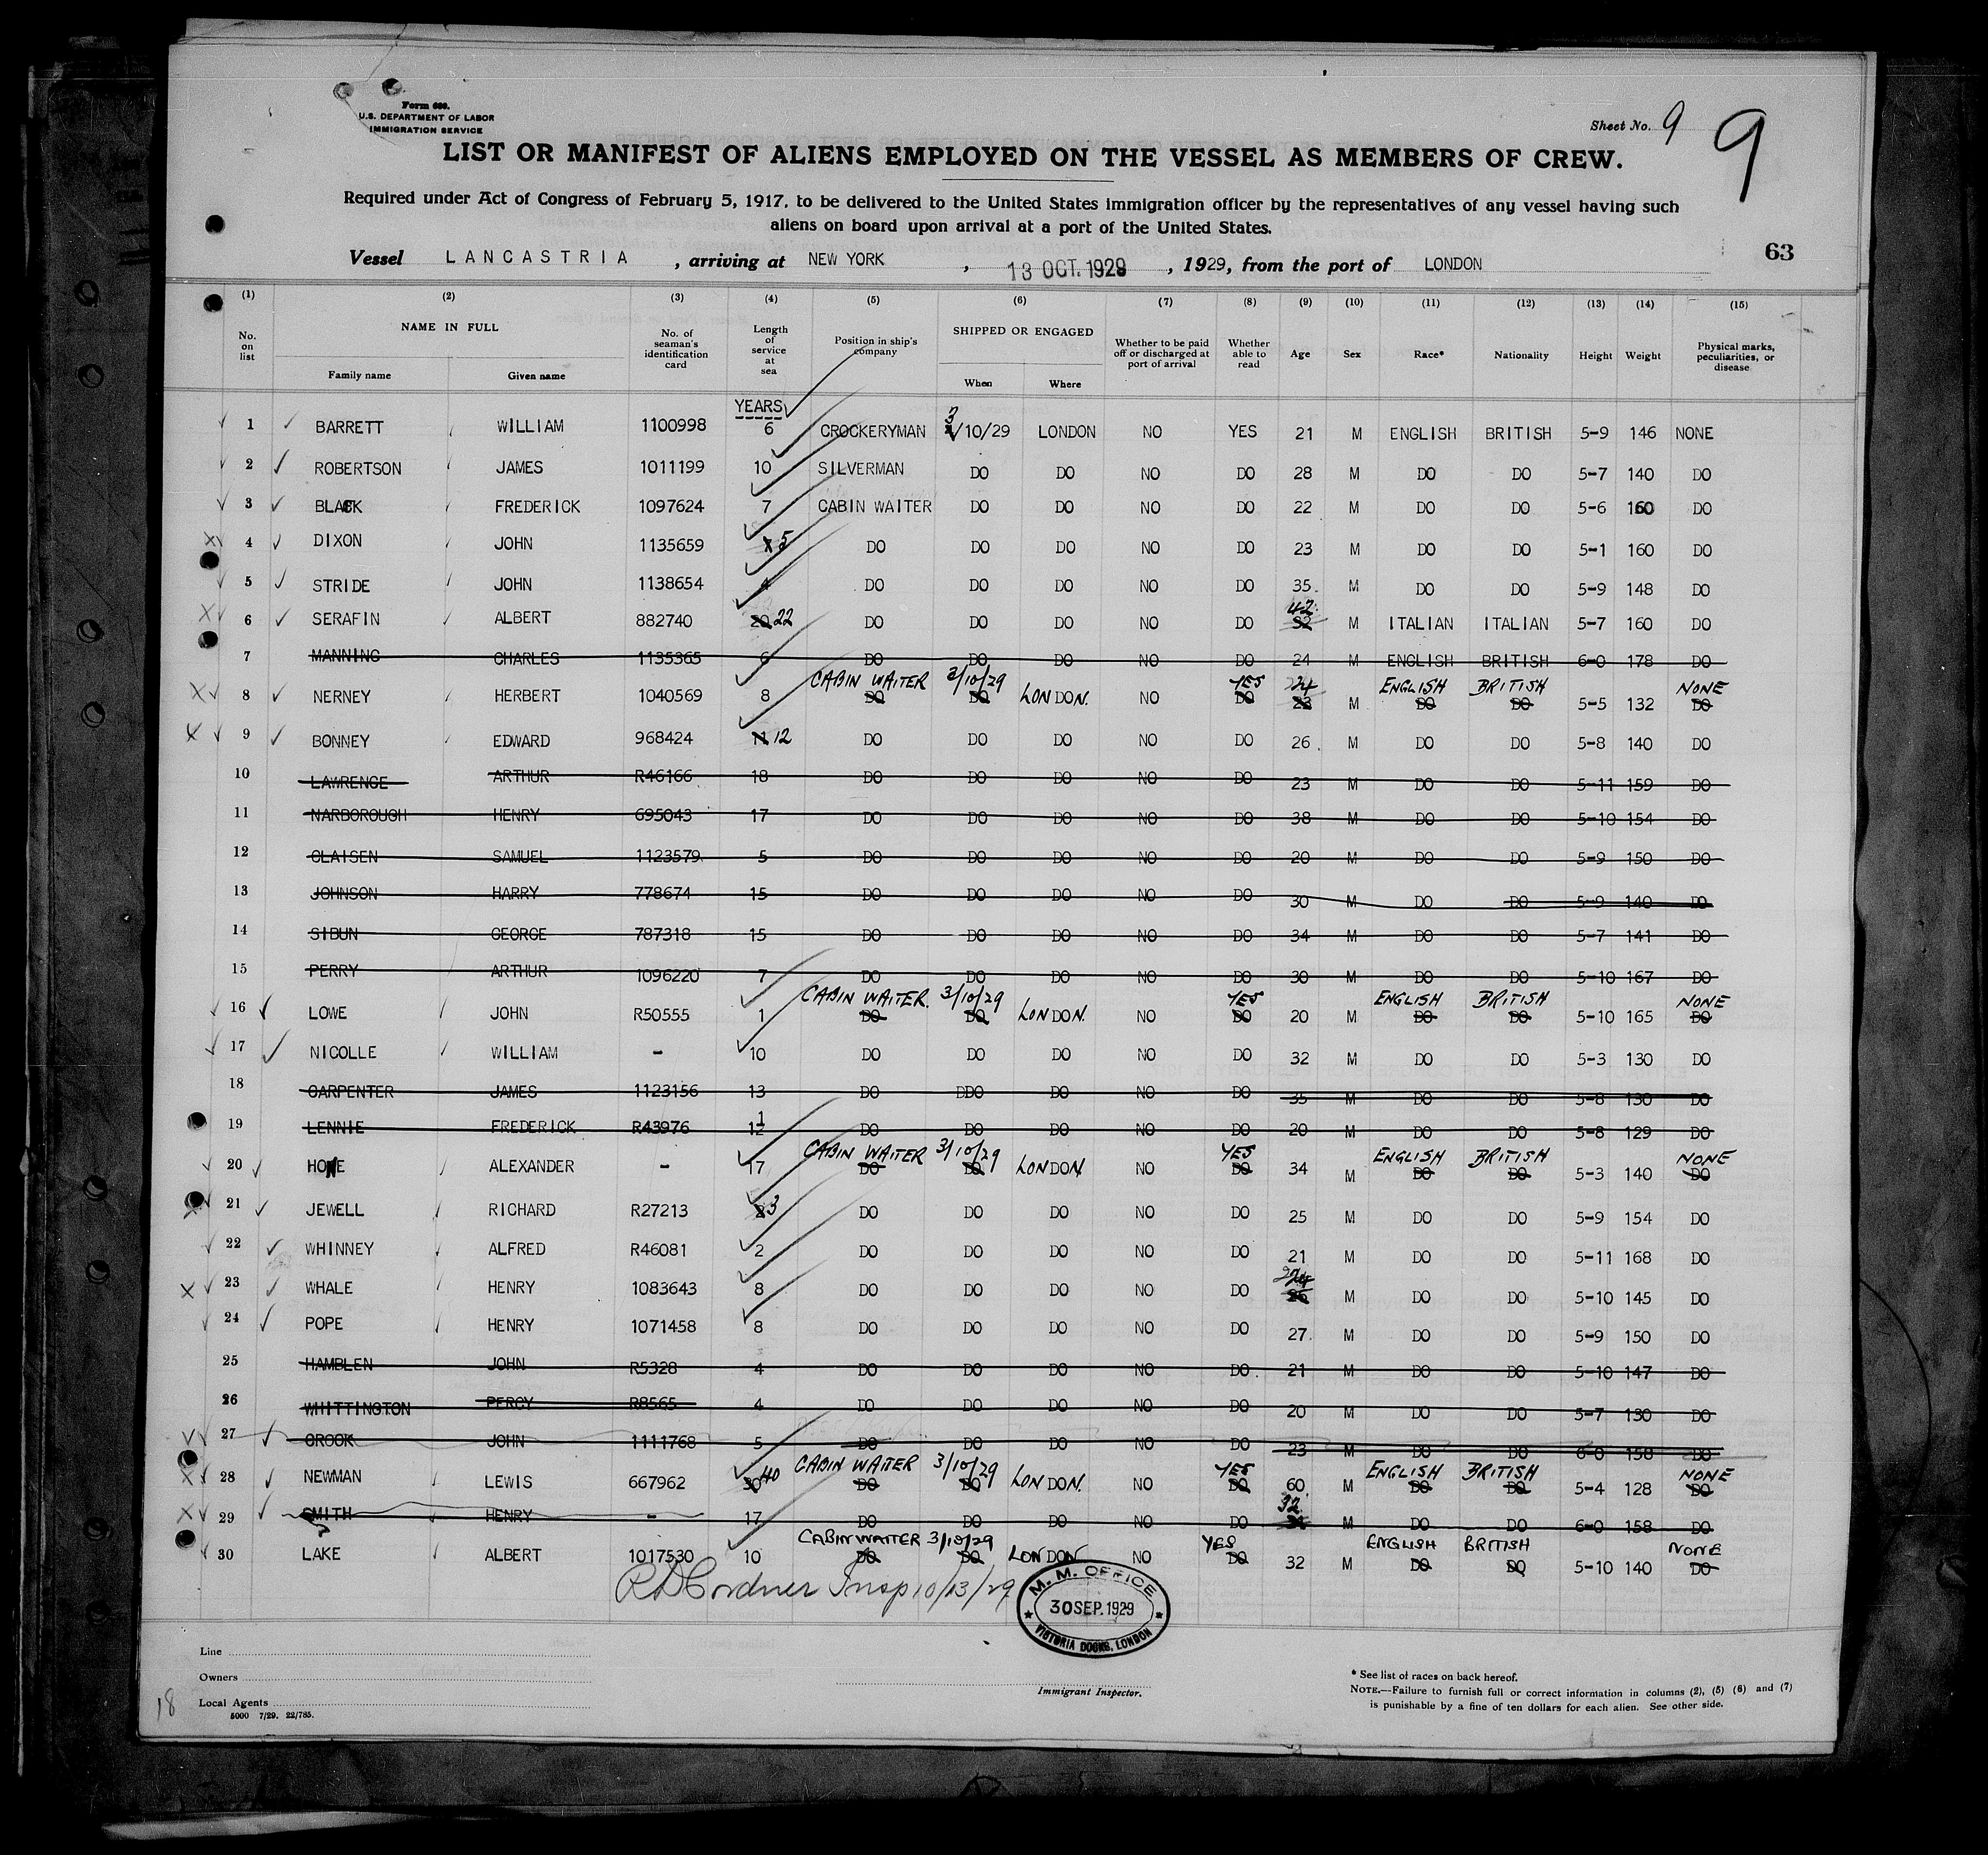 Form 680.
U.S. DEPARTMENT OF LABOR
IMMIGRATION SERVICE
Sheet No. 9 9
LIST OR MANIFEST OF ALIENS EMPLOYED ON THE VESSEL AS MEMBERS OF CREW.
Required under Act of Congress of February 5, 1917, to be delivered to the United States immigration officer by the representatives of any vessel having such
aliens on board upon arrival at a port of the United States.
63
Vessel LANCASTRIA , arriving at NEW YORK , 13 OCT. 1929 , 1929, from the port of LONDON
(1) (2) (3) (4) (5) (6) (7) (8) (9) (10) (11) (12) (13) (14) (15)
No. on list NAME IN FULL Family name Given name No. of seaman's identification card Length of service at sea Position in ship's company SHIPPED OR ENGAGED When Where Whether to be paid off or discharged at port of arrival Whether able to read Age Sex Race* Nationality Height Weight Physical marks, peculiarities, or disease
YEARS
1 BARRETT WILLIAM 1100998 6 CROCKERYMAN 3/10/29 LONDON NO YES 21 M ENGLISH BRITISH 5-9 146 NONE
2 ROBERTSON JAMES 1011199 10 SILVERMAN DO DO NO DO 28 M DO DO 5-7 140 DO
3 BLACK FREDERICK 1097624 7 CABIN WAITER DO DO NO DO 22 M DO DO 5-6 160 DO
4 DIXON JOHN 1135659 5 DO DO DO NO DO 23 M DO DO 5-1 160 DO
5 STRIDE JOHN 1138654 4 DO DO DO NO DO 35 M DO DO 5-9 148 DO
6 SERAFIN ALBERT 882740 20 22 DO DO DO NO DO 42 32 M ITALIAN ITALIAN 5-7 160 DO
7 MANNING CHARLES 1135365 6 DO DO DO NO DO 24 M ENGLISH BRITISH 6-0 178 DO
CABIN WAITER 3/10/29 YES 24 ENGLISH BRITISH NONE
8 NERNEY HERBERT 1040569 8 DO DO LONDON. NO DO 23 M DO DO 5-5 132 DO
9 BONNEY EDWARD 968424 11 12 DO DO DO NO DO 26 M DO DO 5-8 140 DO
10 LAWRENCE ARTHUR R46166 18 DO DO DO NO DO 23 M DO DO 5-11 159 DO
11 NARBOROUGH HENRY 695043 17 DO DO DO NO DO 38 M DO DO 5-10 154 DO
12 CLAISEN SAMUEL 1123579 5 DO DO DO NO DO 20 M DO DO 5-9 150 DO
13 JOHNSON HARRY 778674 15 DO DO DO NO DO 30 M DO DO 5-9 140 DO
14 SIBUN GEORGE 787318 15 DO DO DO NO DO 34 M DO DO 5-7 141 DO
15 PERRY ARTHUR 1096220 7 DO DO DO NO DO 30 M DO DO 5-10 167 DO
CABIN WAITER. 3/10/29 YES ENGLISH BRITISH NONE
16 LOWE JOHN R50555 1 DO DO LONDON. NO DO 20 M DO DO 5-10 165 DO
17 NICOLLE WILLIAM - 10 DO DO DO NO DO 32 M DO DO 5-3 130 DO
18 CARPENTER JAMES 1123156 13 DO DDO DO NO DO 35 M DO DO 5-8 130 DO
19 LENNIE FREDERICK R43976 1 DO DO DO NO DO 20 M DO DO 5-8 129 DO
CABIN WAITER 3/10/29 YES ENGLISH BRITISH NONE
20 ALEXANDER - 17 DO DO LONDON NO DO 34 M DO DO 5-3 140 DO
21 JEWELL RICHARD R27213 3 DO DO DO NO DO 25 M DO DO 5-9 154 DO
22 WHINNEY ALFRED R46081 2 DO DO DO NO DO 21 M DO DO 5-11 168 DO
23 WHALE HENRY 1083643 8 DO DO DO NO DO 26 M DO DO 5-10 145 DO
24 POPE HENRY 1071458 8 DO DO DO NO DO 27 M DO DO 5-9 150 DO
25 HAMBLEN JOHN R5328 4 DO DO DO NO DO 21 M DO DO 5-10 147 DO
26 WHITTINGTON PERCY R8565 4 DO DO DO NO DO 20 M DO DO 5-7 130 DO
27 CROOK JOHN 1111768 5 DO DO DO NO DO 23 M DO DO 6-0 158 DO
CABIN WAITER 3/10/29 YES ENGLISH BRITISH NONE
28 NEWMAN LEWIS 667962 30 40 DO DO LONDON. NO DO 60 M DO DO 5-4 128 DO
29 SMITH HENRY - 17 DO DO DO NO DO 32 M DO DO 6-0 158 DO
CABIN WAITER 3/10/29 YES ENGLISH BRITISH NONE
30 LAKE ALBERT 1017530 10 DO DO LONDON NO DO 32 M DO DO 5-10 140 DO
Insp 10/13/29
M. M. OFFICE
30 SEP. 1929
VICTORIA DOCKS, LONDON
Line
Owners
Local Agents
5000 7/29. 22/785.
18
Immigrant Inspector.
* See list of races on back hereof.
NOTE.—Failure to furnish full or correct information in columns (2), (5) (6) and (7)
is punishable by a fine of ten dollars for each alien. See other side.